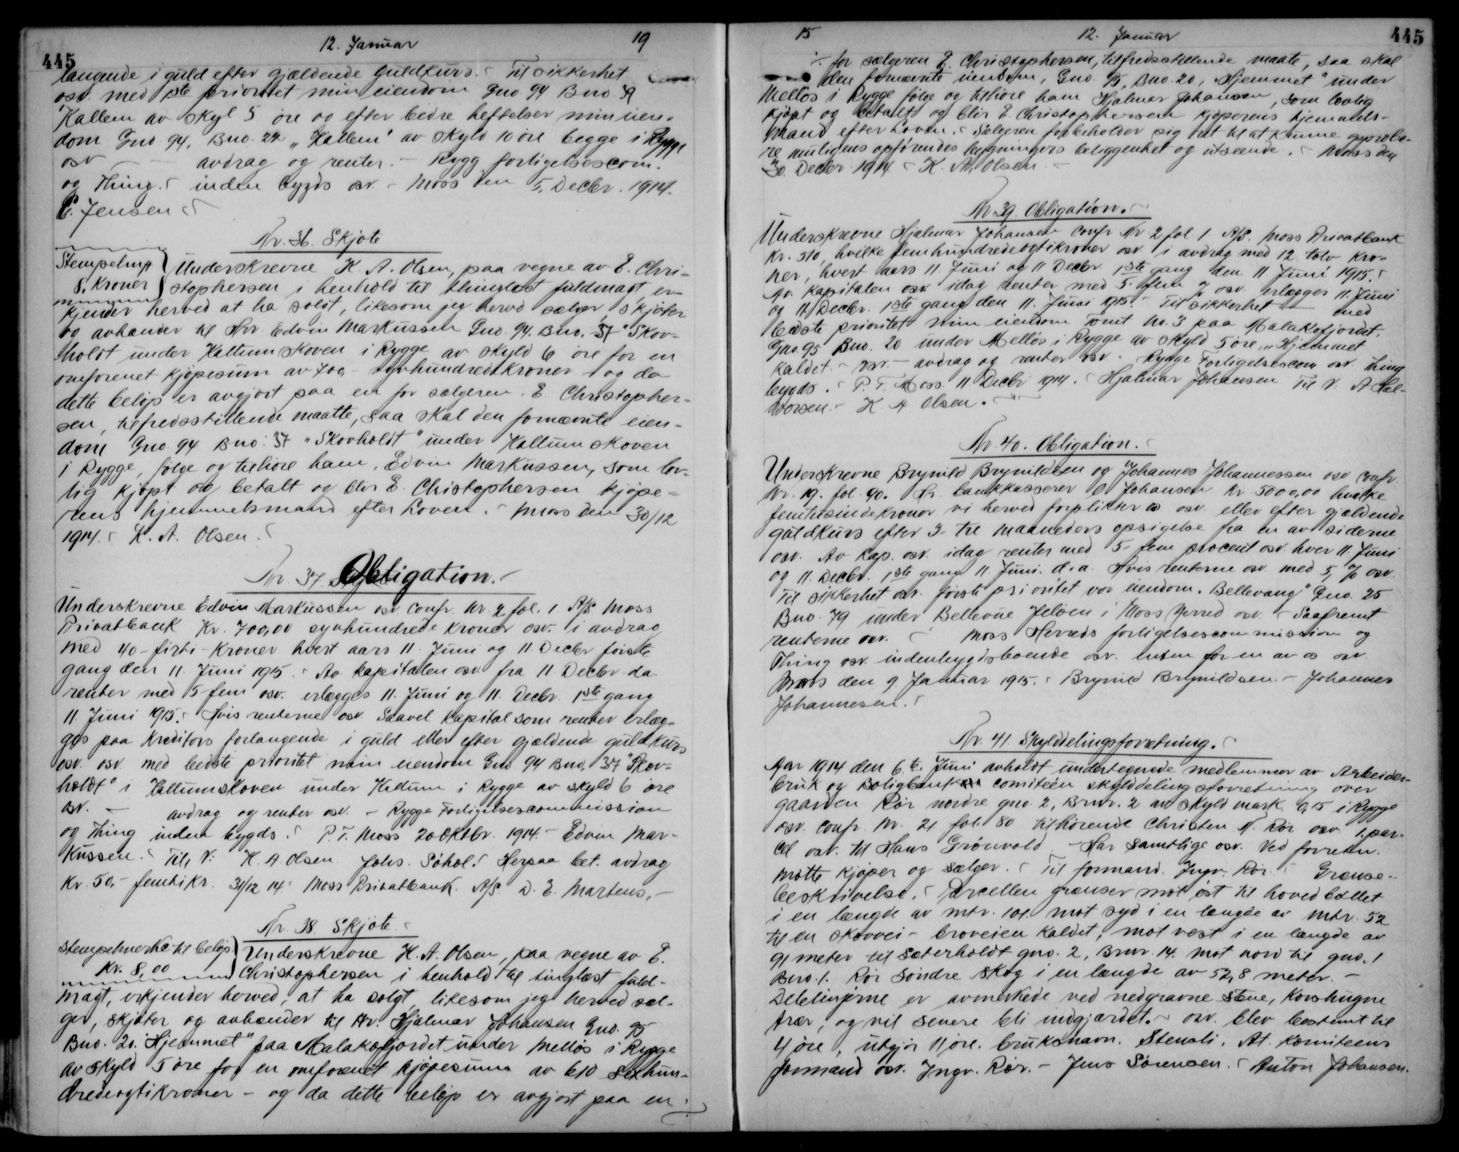 445
12. Januar
19
langende i guld efter gjældende Guldkurs. Til sikkerhet
osv. med 1ste prioritet min eiendom Gno 94 Bno. 39
Hallem av skyl 5 øre og efter bedre heftelser min eien-
dom Gno 94, Bno. 22 „Hallem" av skyld 10 øre begge i Rygge
osv avdrag og renter. - Rygg forligelsescom.
og Thing. inden bygds osv. - Moss den 5. Decbr. 1914.
C. Jensen
Nr. 36. Skjøte
Stempelmp 8. Kroner
Underskrevne K. A. Olsen, paa vegne av E. Chri-
stophersen i henhold til thinglæst fuldmagt er-
kjender herved at ha solgt, likesom jeg herved sælger skjøter
og avhænder til Hr Edvin Markussen Gno. 94. Bno. 37 "Skov-
holdt under Hattum skoven i Rygge av skyld 6 øre for en
omforenet kjøpesum av 700 - syvhundredekroner og da
dette beløp er avgjort paa en for sælgeren. E. Christopher-
sen, tilfredsstillende maatte, saa skal den fornævnte eien-
dom Gno 94 Bno: 37 "Skovholdt" under Hattum skoven
i Rygge, følge og tilhøre ham. Edvin Markussen, som lov-
lig kjøpt og betalt og blir E. Christophersen kjøpe-
rens hjemmelsmand efter Loven. Moss den 30/12
1914. K. A. Olsen.
Nr 37. Obligation.
Underskrevne Edvin Markussen osv Confr. Nr 2 fol. 1 A/S Moss
Privatbank Kr. 700,00 syvhundrede kroner osv. i avdrag
med 40 - firti - kroner hvert aars 11 Juni og 11 Decbr første
gang den 11 Juni 1915. Av kapitalen osv. fra 11 Decbr da
renter med 5 fem osv. erlægges 11. Juni og 11. Decbr. 1ste gang
11 Juni 1915. Hvis renterne osv Saavel Kapital som renter erlæg-
ges paa Kreditors forlangende i guld eller efter gjældende guldkurs
osv. osv. med bedste prioritet min eiendom Gno 94 Bno. 37 "Skov-
holdt" i Hattumskoven under Hattum i Rygge av skyld 6 øre
osv. - avdrag og renter osv. - Rygge Forligelsescommission
og Thing inden bygds. P.T. Moss 20 Oktbr. 1914 - Edvin Mar-
kussen. Til V: K. A Olsen Johs. Sohol. Herpaa bet. avdrag
Kr. 50,- femti kr. 31/12 14 Moss Privatbank. A/S D. E. Martens.-
Nr 38. Skjøte.
Stempelmerke til beløp Kr. 8,00
Underskrevne K. A. Olsen, paa vegne av E.
Christophersen i henhold til tinglæst fuld-
magt, erkjender herved, at ha solgt, likesom jeg herved sæl-
ger, skjøter og avhænder til Hr. Hjalmar Johansen Gno. 95
Bno. 20. Hjemmet" paa Malakofjordet under Melløs i Rygge
av skyld 5 øre for en omforenet kjøpesum av 610 Sexhun-
dredeogtikroner - og da dette beløp er avgjort paa en
15
12. Januar
445
for sælgeren E. Christophersen, tilfredsstillende maate, saa skal
den fornævnte eiendom, Gno. 95, Bno. 20, "Hjemmet" under
Melløs i Rygge følge og tilhøre ham Hjalmar Johansen, som lovlig
kjøpt og betalt og blir E. Christophersen kjøperens hjemmels-
mand efter Loven. Sælgeren forbeholder sig ret til at kunne approbe-
re muligens opførendes bygningers beliggenhet og utseende. Moss den
30 Decbr 1914 - K. A. Olsen -
Nr 39. Obligation.
Underskrevne Hjalmar Johansen Confr Nr 2 fol 1 A/S. Moss Privatbank
Kr. 510, hvilke femhundredeogtikroner osv i avdrag med 12 tolv kro-
ner, hvert aars 11. Juni og 11 Decbr 1ste gang den 11 Juni 1915.
Av kapitalen osv idag renter med 5 - fem % osv erlægges 11. Juni
og 11 Decbr. 1ste gang den 11. Juni 1915. Til sikkerhet - med
bedste prioritet min eiendom Tomt No. 3 paa Malakofjordet.
Gno 95 Bno. 20 under Melløs i Rygge av skyld 5 øre „Hjemmet
kaldet - osv. - avdrag og renter osv. Rygge Forligelsescom osv Thing
bygds. P. T. Moss 11 Decbr 1914. Hjalmar Johansen Til V. A Hal-
vorsen. - K A Olsen.
Nr. 40. Obligation.
Underskrevne Brynild Brynildsen og Johannes Johannessen osv Confr
Nr. 19. fol. 90. Hr. bankkasserer O. Johansen Kr 5000,00 hvilke
femtusindekroner vi herved forplikter os osv eller efter gjældende
guldkurs efter 3 tre maaneders opsigelse fra en av siderne
osv. Av Kap. osv. idag renter med 5 - fem procent osv. hver 11 Juni
og 11. Decbr. 1ste gang 11 Juni. d. a. Hvis renterne osv med 5, % osv.
Til sikkerhet osv. første prioritet vor eiendom. Bellevang" Gno. 25
Bno. 79 under Bellevue Jeløen i Moss Herred osv - Saafremt
renterne osv. Moss Herreds forligelsescommission og
Thing osv. indenbygdsboende osv. enten for en av os osv.
Moss den 9 Januar 1915. Brynild Brynildsen - Johannes
Johannessen.
Nr. 41. Skylddelingsforretning.
Aar 1914 den 6 t. Juni avholdt undertegnede medlemmer av Arbeider-
bruk og Boligbank comiteen skylddelingsforretning over
gaarden Rør nordre gno. 2, Brnr. 2 av skyld mark 9,15 i Rygge
osv. Confr Nr. 21 fol. 80 tilhørende Christen N. Rør osv. 1. par-
cel osv. til Hans Grønvold. Har samtlige osv. Ved forretn.
møtte kjøper og sælger. Til formand. Ingv. Rør. Grænse-
beskrivelse. Parcellen grænser mot øst til hovedbøllet
i en længde av mtr. 101. mot syd i en længde av mtr. 52
til en skovvei - broveien kaldet, mot vest i en længde av
91 meter til Sæterholdt gno. 2, Brnr. 14. mot nord til gno. 1
Bno. 1. Rør Søndre skog i en længde av 52,8 meter. -
Delelinjerne er avmerkede ved nedgravne stene, Korshugne
trær, og vil senere bli indgjærdet. osv. blev bestemt til
4 øre, utgjør 11, øre. bruksnavn. Stensli. At. Komiteens
formand osv. Ingv. Rør. - Jens Sørensen. Anton Johansen.